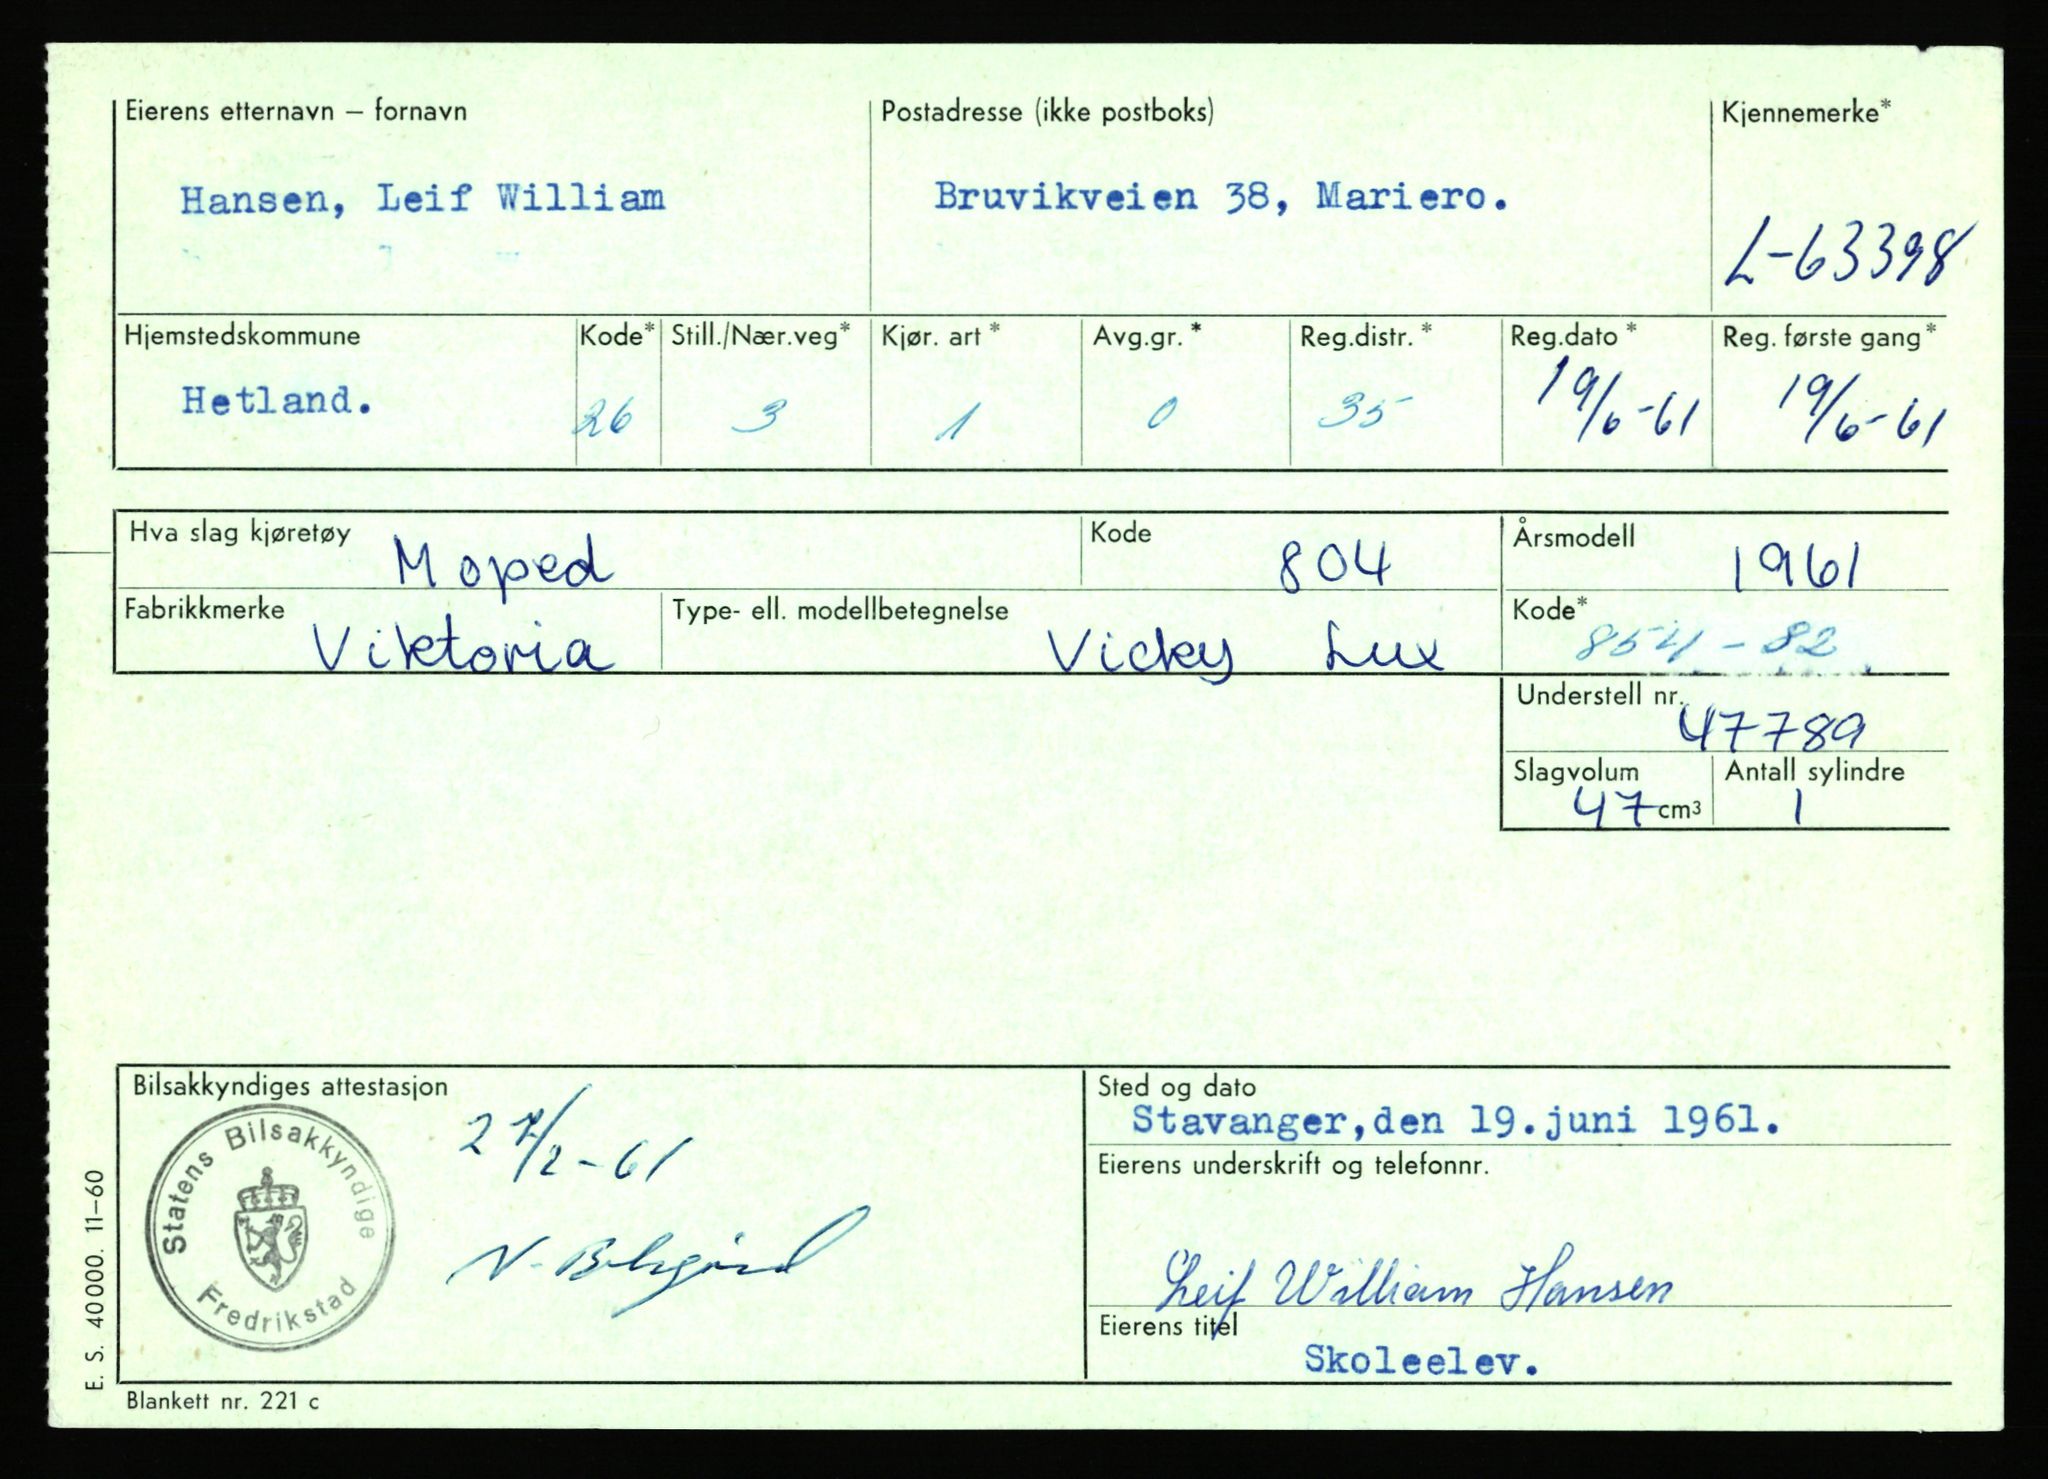 Eierens etternavn – fornavn
Postadresse (ikke postboks)
Kjennemerke*
Hansen, Leif William
Bruvikveien 38, Mariero.
L-63398
Hjemstedskommune
Kode*
Still./Nær.veg*
Kjør. art *
Avg.gr. *
Reg.distr. *
Reg.dato *
Reg. første gang *
Hetland.
26
3
1
0
35
19/6-61
19/6-61
Hva slag kjøretøy
Moped
Kode
804
Årsmodell
1961
Fabrikkmerke
Viktoria
Type- ell. modellbetegnelse
Vicky Lux
Kode*
854-82
Understell nr.
47789
Slagvolum
47 cm³
Antall sylindre
1
Bilsakkyndiges attestasjon
Statens Bilsakkyndige
Fredrikstad
Sted og dato
Stavanger, den 19. juni 1961.
Eierens underskrift og telefonnr.
Leif William Hansen
Eierens titel
Skoleelev.
E. S. 40000. 11–60
Blankett nr. 221 c